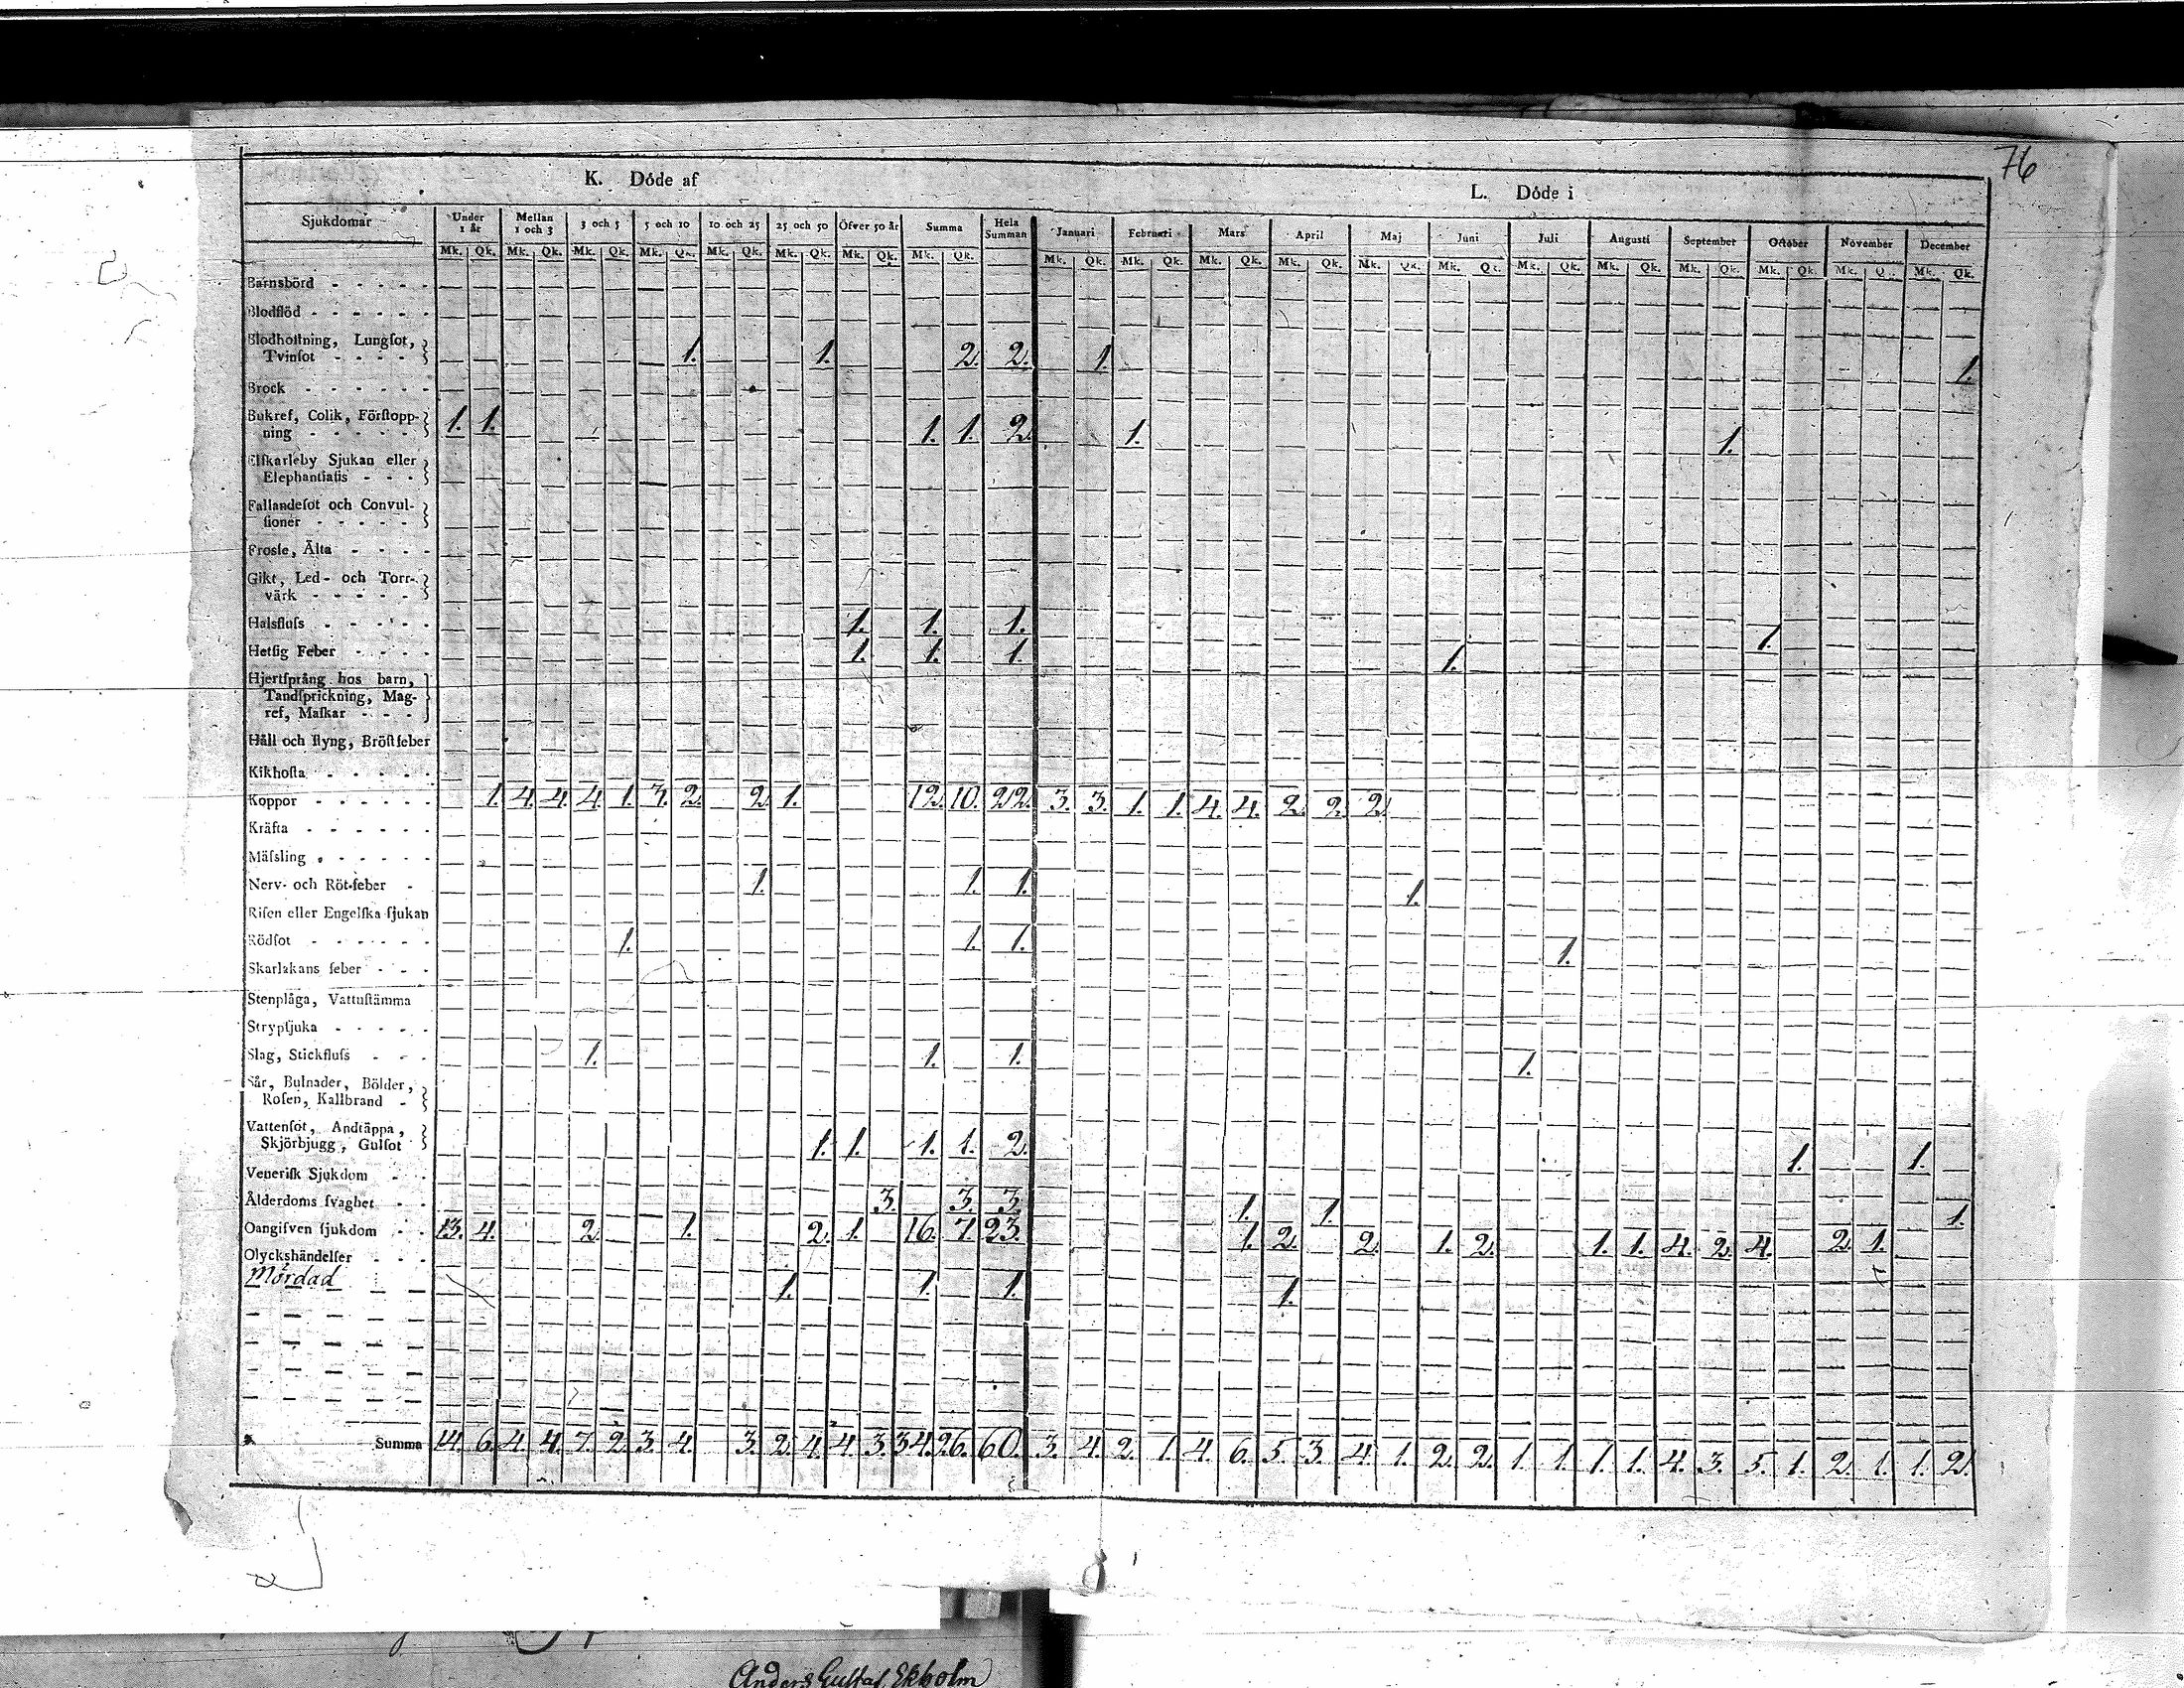 76
K. Döde af
L. Döde i
Sjukdomar Under 1 år Mellan 1 och 3 3 och 5 5 och 10 10 och 25 25 och 50 Öfver 50 år Summa Hela Summan Januari Februari Mars April Maj Juni Juli Augusti September October November December
Mk. Qk. Mk. Qk. Mk. Qk. Mk. Qk. Mk. Qk. Mk. Qk. Mk. Qk. Mk. Qk. Mk. Qk. Mk. Qk. Mk. Qk. Mk. Qk. Mk. Qk. Mk. Qk. Mk. Qk. Mk. Qk. Mk. Qk. Mk. Qk. Mk. Qk. Mk. Qk.
Barnsbörd - - - - -
Blodflöd - - - - - -
Blodhostning, Lungsot,
Tvinsot - - - - 1. 1. 2. 2. 1. 1.
Brock - - - - - -
Bukref, Colik, Förstopp-
ning - - - - - 1. 1. 1. 1. 2. 1. 1.
Elfkarleby Sjukan eller
Elephantiasis - - -
Fallandesot och Convul-
sioner - - - - -
Frossa, Älta - - - -
Gikt, Led- och Torr-
värk - - - - -
Halsfluss - - - - - 1. 1. 1. 1.
Hetsig Feber - - - - 1. 1. 1. 1.
Hjertsprång hos barn,
Tandsprickning, Mag-
ref, Maskar - - -
Håll och styng, Bröstfeber
Kikhosta - - - - -
Koppor - - - - - - 1. 4. 4. 4. 1. 3. 2. 2. 1. 12. 10. 22. 3. 3. 1. 1. 4. 4. 2. 2. 2.
Kräfta - - - - - -
Mässling - - - - - -
Nerv- och Röt-feber - 1. 1. 1. 1.
Risen eller Engelska sjukan
Rödsot - - - - - - 1. 1. 1. 1.
Skarlakans feber - - -
Stenplåga, Vattustämma
Strypsjuka - - - - -
Slag, Stickfluss - - - 1. 1. 1. 1.
Sår, Bulnader, Bölder,
Rosen, Kallbrand -
Vattensot, Andtäppa,
Skjörbjugg, Gulsot 1. 1. 1. 1. 2. 1. 1.
Venerisk Sjukdom - -
Ålderdoms svaghet - - 3. 3. 3. 1. 1. 1.
Oangifven sjukdom - - 13. 4. 2. 1. 2. 1. 16. 7. 23. 1. 2. 2. 1. 2. 1. 1. 4. 2. 4. 2. 1.
Olyckshändelser - - -
Mördad 1. 1. 1. 1.
Summa 14. 6. 4. 4. 7. 2. 3. 4. 3. 2. 4. 4. 3. 34. 26. 60. 3. 4. 2. 1. 4. 6. 5. 3. 4. 1. 2. 2. 1. 1. 1. 1. 4. 3. 5. 1. 2. 1. 1. 2.
Anders Gustaf Ekholm